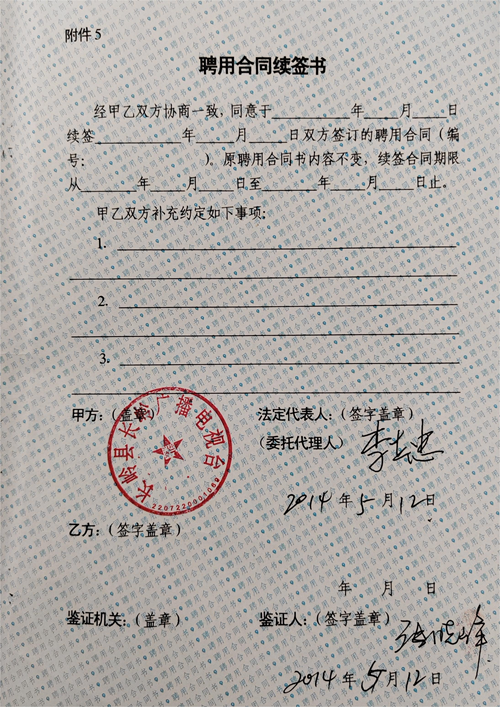 附件 5
聘用合同续签书
经甲乙双方协商一致，同意于____年____月____日
续签____年____月____日双方签订的聘用合同（编
号：          ）。原聘用合同书内容不变，续签合同期限
从____年____月____日至____年____月____日止。
甲乙双方补充约定如下事项：
1.
2.
3.
甲方：（盖章）
长岭县长岭广播电视台
2207220001069
法定代表人：（签字盖章）
（委托代理人）
李志忠
2014 年 5 月 12 日
乙方：（签字盖章）
年 月 日
鉴证机关：（盖章）
鉴证人：（签字盖章）
张晓峰
2014 年 5 月 12 日